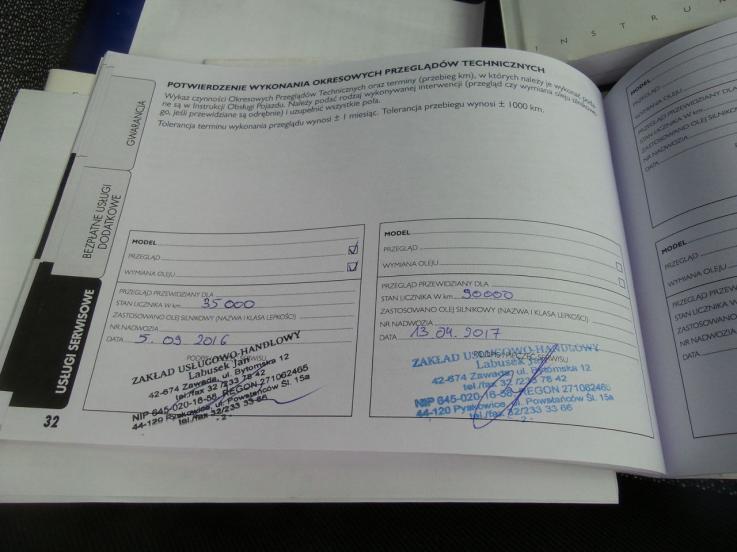 INSTRU
POTWIERDZENIE WYKONANIA OKRESOWYCH PRZEGLĄDÓW TECHNICZNYCH
Wykaz czynności Okresowych Przeglądów Technicznych oraz terminy (przebieg km), w których należy je wykonać, poda-
ne są w Instrukcji Obsługi Pojazdu. Należy podać rodzaj wykonywanej interwencji (przegląd czy wymiana oleju silnikowe-
go, jeśli przewidziane są odrębnie) i uzupełnić wszystkie pola.
Tolerancja terminu wykonania przeglądu wynosi ± 1 miesiąc. Tolerancja przebiegu wynosi ± 1000 km.
GWARANCJA
BEZPŁATNE USŁUGI
DODATKOWE
USŁUGI SERWISOWE
32
MODEL
PRZEGLĄD
WYMIANA OLEJU
PRZEGLĄD PRZEWIDZIANY DLA
STAN LICZNIKA W km 35000
ZASTOSOWANO OLEJ SILNIKOWY (NAZWA I KLASA LEPKOŚCI)
NR NADWOZIA
DATA 5.09 2016
ZAKŁAD USŁUGOWO-HANDLOWY
Labusek Jan
42-674 Zawada, ul. Bytomska 12
tel./fax 32 /233 78 42
NIP 645-020-16-58, REGON 271062465
44-120 Pyskowice, ul. Powstańców Śl. 15a
tel./fax 32/233 33 66
- 2 -
MODEL
PRZEGLĄD
WYMIANA OLEJU
PRZEGLĄD PRZEWIDZIANY DLA
STAN LICZNIKA W km 90000
ZASTOSOWANO OLEJ SILNIKOWY (NAZWA I KLASA LEPKOŚCI)
NR NADWOZIA
DATA 13 04. 2017
ZAKŁAD USŁUGOWO-HANDLOWY
Labusek Jan
42-674 Zawada, ul. Bytomska 12
tel./fax 32 /233 78 42
NIP 645-020-16-58, REGON 271062465
44-120 Pyskowice, ul. Powstańców Śl. 15a
tel./fax 32/233 33 66
- 2 -
MODEL
PRZEGLĄD
WYMIANA OLEJU
PRZEGLĄD PRZEWIDZIANY DLA
STAN LICZNIKA W km
ZASTOSOWANO OLEJ SILNIKOW
NR NADWOZIA
DATA
MODEL
PRZEGLĄD
WYMIANA OLEJU
PRZEGLĄD PRZEW
STAN LICZNIKA W
ZASTOSOWANO
NR NADWOZIA
DATA